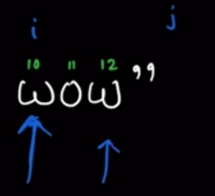 i j
10 11 12
wow”